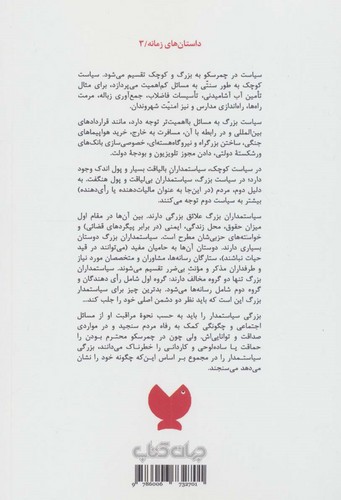 داستان‌های زمانه/۳
سیاست در چمرسکو به بزرگ و کوچک تقسیم می‌شود. سیاست
کوچک به طور سنتی به مسائل کم‌اهمیت می‌پردازد، برای مثال
تأمین آب آشامیدنی، تأسیسات فاضلاب، جمع‌آوری زباله، مرمت
راه‌ها، راه‌اندازی مدارس و نیز امنیّت شهروندان.
سیاست بزرگ به مسائل بااهمیّت توجه دارد، مانند قراردادهای
بین‌المللی و در رابطه با آن، مسافرت به خارج، خرید هواپیماهای
جنگی، ساختن بزرگراه و نیروگاه هسته‌ای، خصوصی‌سازی بانک‌های
ورشکستهٔ دولتی، دادن مجوز تلویزیون و بودجهٔ دولت.
در سیاست کوچک، سیاستمداران بالیاقت بسیار و پول اندک وجود
دارد؛ در سیاست بزرگ، سیاستمداران بی‌لیاقت و پول هنگفت. به
دلیل دوم، مردم (در این‌جا به عنوان مالیات‌دهنده یا رأی‌دهنده)
بیشتر به سیاست دوم توجه می‌کنند.
سیاستمداران بزرگ علائق بزرگی دارند. بین آن‌ها در مقام اول
میزان حقوق، محل زندگی، ایمنی (در برابر پیگردهای قضائی) و
خواسته‌های حزبی‌شان مطرح است. سیاستمداران بزرگ دوستان
بسیاری دارند. دوستان آن‌ها به حامیان مفید (می‌توانند در قید
حیات نباشند)، ستارگان رسانه‌ها، مشاوران و متخصصان مورد نیاز
و طرفداران مذکر و مؤنث بی‌ضرر تقسیم می‌شوند. سیاستمداران
بزرگ تنها دو گروه مخالف دارند: گروه اول شامل رأی دهندگان و
گروه دوم شامل رسانه‌ها می‌شود. بدترین چیز برای سیاستمدار
بزرگ این است که باید نظر دو دشمن اصلی خود را جلب کند...
بزرگی سیاستمدار را باید به حسب نحوهٔ مراقبت او از مسائل
اجتماعی و چگونگی کمک به رفاه مردم سنجید و در مواردی
صداقت و توانایی‌اش. ولی چون در چمرسکو محترم بودن را
حماقت یا ساده‌لوحی و کاردانی را خطرناک می‌دانند، بزرگی
سیاستمدار را در مجموع بر اساس این‌که چگونه خود را نشان
می‌دهد می‌سنجند.
جهان کتاب
9 786006 732701